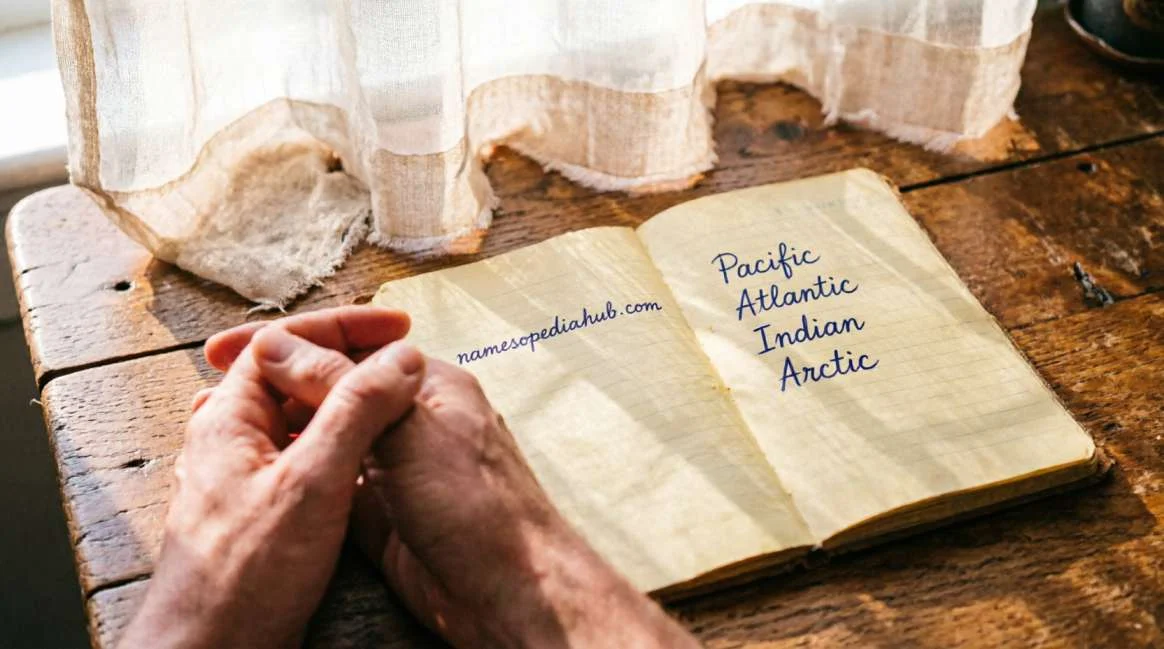 namesopediahub.com
Pacific
Atlantic
Indian
Arctic